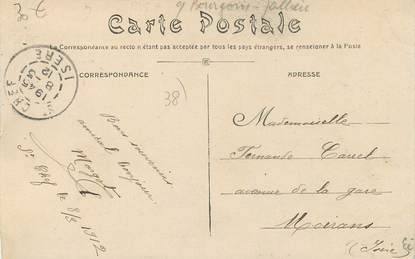 Bourgoin-Jallieu
Carte Postale
La Correspondance au recto n'étant pas acceptée par tous les pays étrangers, se renseigner à la Poste
CORRESPONDANCE
ADRESSE
ISERE
38)
Bons souvenirs
amical bonjour
Margot
le 8/3 1912
Mademoiselle
Fernande
avenue de la gare
Moirans
(Isère)